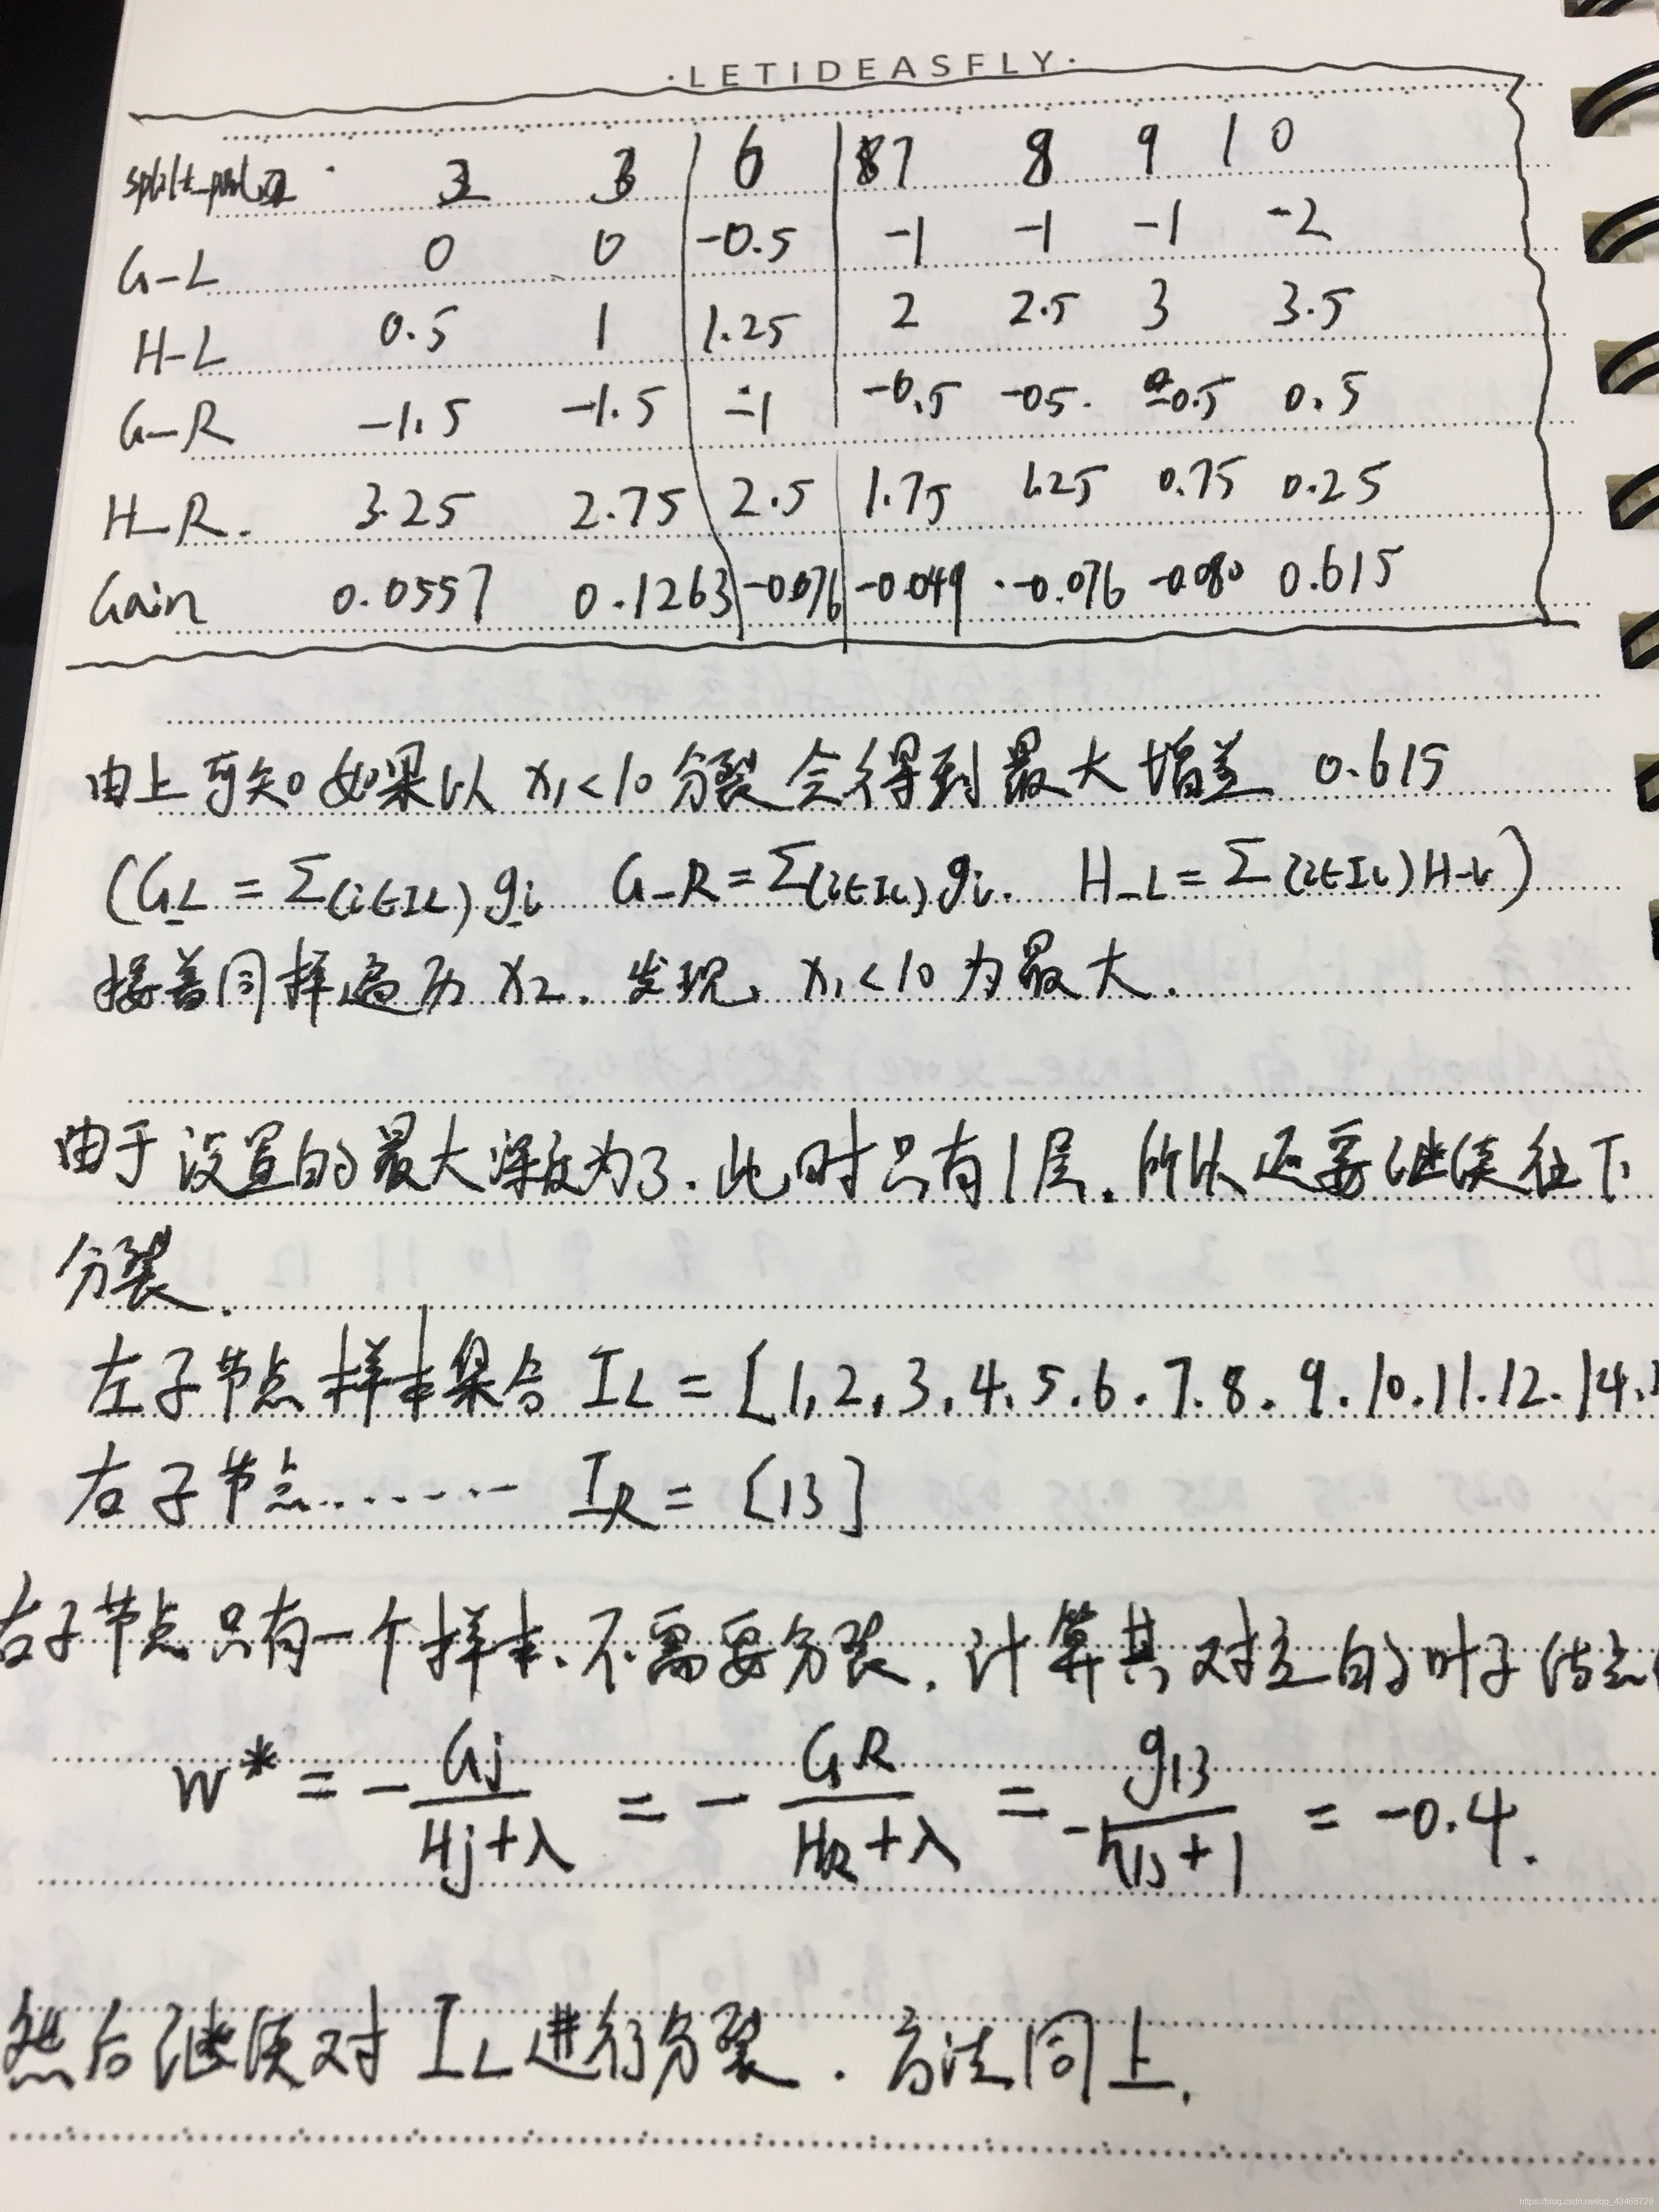 ·LETIDEASFLY·
2 3 6 7 8 9 10
G-L 0 0 -0.5 -1 -1 -1 -2
H-L 0.5 1 1.25 2 2.5 3 3.5
G-R -1.5 -1.5 -1 -0.5 -0.5. -0.5 0.5
H-R. 3.25 2.75 2.5 1.75 1.25 0.75 0.25
Gain 0.0557 0.1263 -0.076 -0.049 -0.076 -0.080 0.615
由上可知如果以 x₁<10 分裂会得到最大增益 0.615
(G_L = Σ(i∈IL) gi G-R = Σ(i∈IL) gi. H-L = Σ(i∈IL) H-i)
接着同样遍历 x2. 发现, x₁<10 为最大.
由于设置的最大深度为3. 此时只有1层. 所以还要继续往下
分裂.
左子节点样本集合 IL = [1, 2, 3, 4, 5. 6. 7. 8. 9. 10. 11. 12. 14.
右子节点........ IR = [13]
右子节点只有一个样本. 不需要分裂. 计算其对应的叶子结点
w* = - Gj/(Hj+λ) = - GR/(HR+λ) = - g13/(h13+1) = -0.4.
然后继续对 IL 进行分裂. 方法同上.
https://blog.csdn.net/qq_43468729